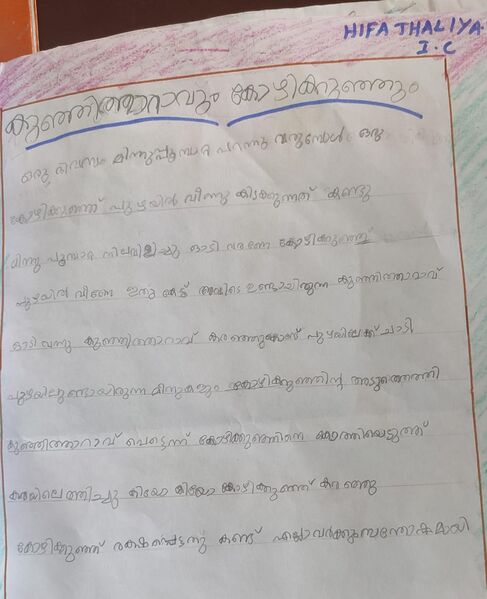 HIFA THALIYA
I.C
കുഞ്ഞിത്താറാവും കോഴികുഞ്ഞും
ഒരു ദിവസം മിന്നുപ്പൂമ്പാറ്റ പറന്നു വരുമ്പോൾ ഒരു
കോഴിക്കുഞ്ഞ് പുഴയിൽ വീണു കിടക്കുന്നത് കണ്ടു
മിന്നു പൂമ്പാറ്റ നിലവിളിച്ചു ഓടി വരണേ കോഴിക്കുഞ്ഞ്
പുഴയിൽ വീണേ ഇതു കേട്ട് അവിടെ ഉണ്ടായിരുന്ന കുഞ്ഞിത്താറാവ്
ഓടി വന്നു കുഞ്ഞിത്താറാവ് കരഞ്ഞുകൊണ്ട് പുഴയിലേക്ക് ചാടി
പുഴയിലുണ്ടായിരുന്ന മീനുകളും കോഴിക്കുഞ്ഞിന്റെ അടുത്തെത്തി
കുഞ്ഞിത്താറാവ് പെട്ടെന്ന് കോഴിക്കുഞ്ഞിനെ കൊത്തിയെടുത്ത്
കരയിലെത്തിച്ചു കിയോ കിയോ കോഴിക്കുഞ്ഞ് കരഞ്ഞു
കോഴിക്കുഞ്ഞ് രക്ഷപ്പെട്ടതു കണ്ട് എല്ലാവർക്കും സന്തോഷമായി